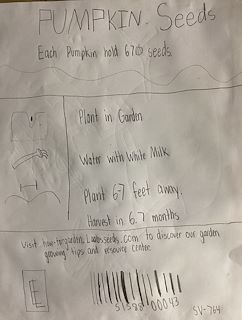 PUMPKIN Seeds
Each Pumpkin hold 670 seeds.
Plant in Garden
Water with White Milk
Plant 67 feet away.
Harvest in 6.7 months
to discover our garden
growing tips and resource center.
E
51588 00043
SV-764